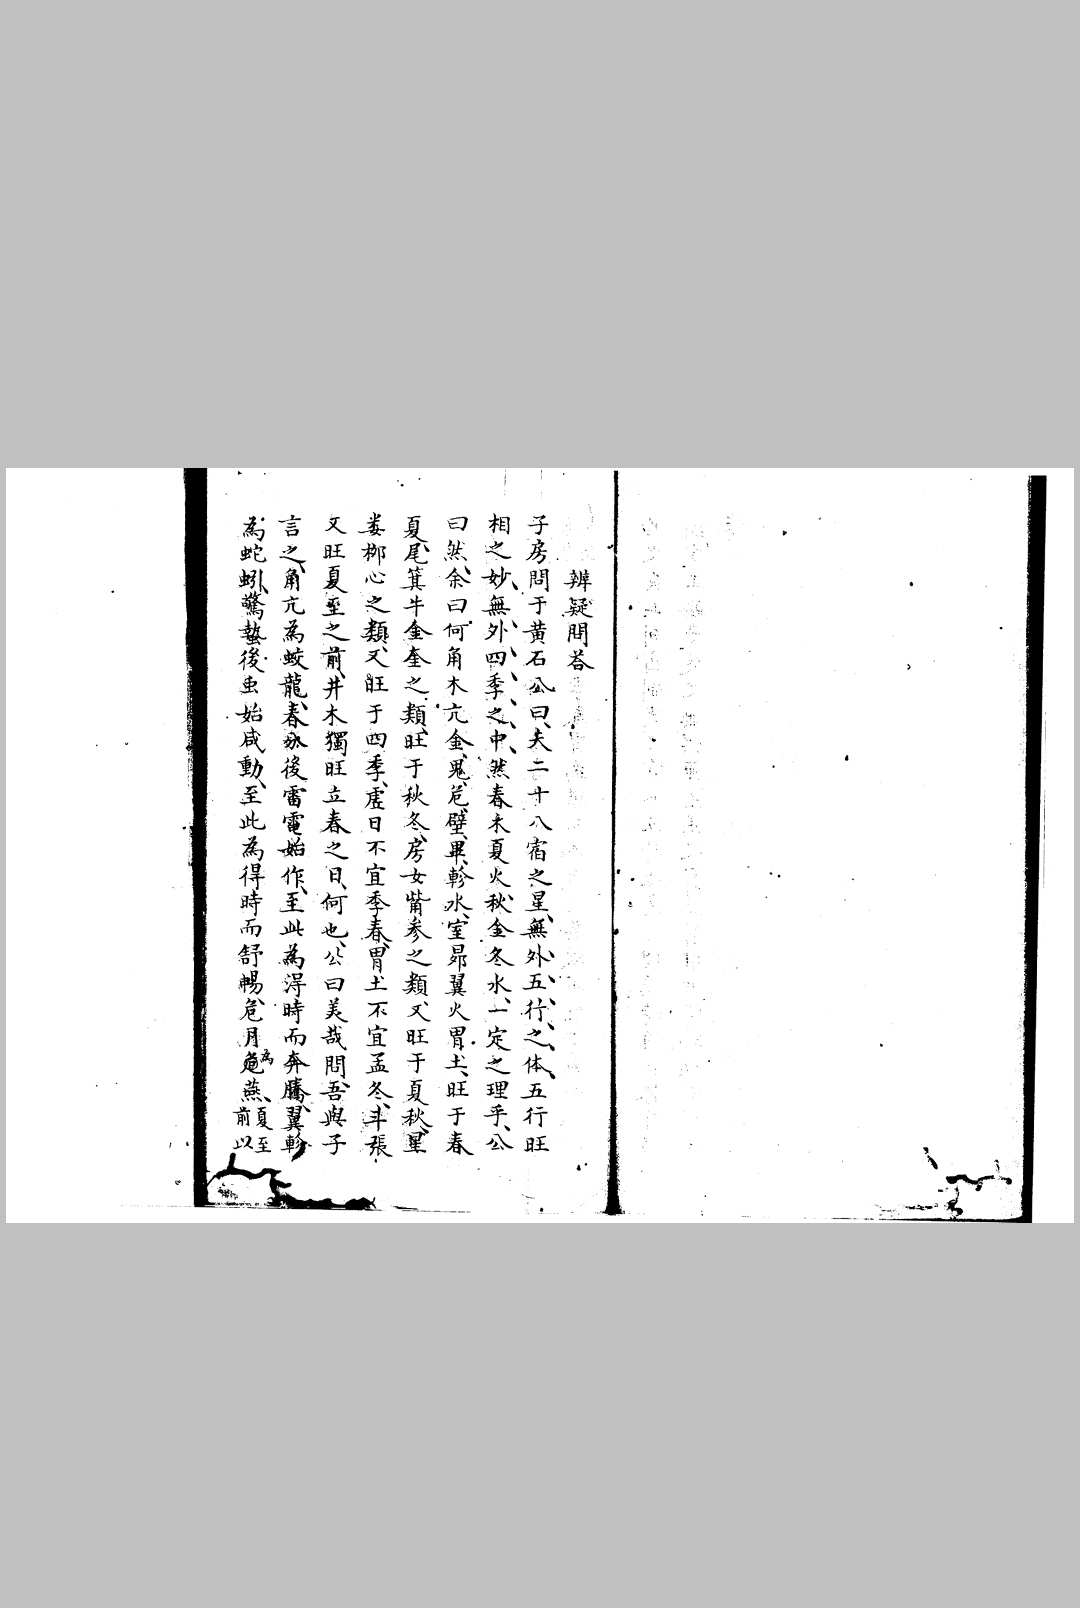 辨疑問荅
子房問于黄石公曰夫二十八宿之星無外五行之体五行旺
相之妙無外四季之中然春木夏火秋金冬水一定之理乎公
曰然余曰何角木亢金鬼危壁畢軫水室昴翼火胃土旺于春
夏尾箕牛金奎之類旺于秋冬房女觜参之類又旺于夏秋星
婁柳心之類又旺于四季虚日不宜季春胃土不宜孟冬斗張
又旺夏至之前井木獨旺立春之日何也公曰美哉問吾與子
言之角亢為蛟龍春分後雷電始作至此為淂時而奔騰翼軫
為蛇蚓驚蟄後虫始咸動至此為得時而舒暢危月為燕夏至前以